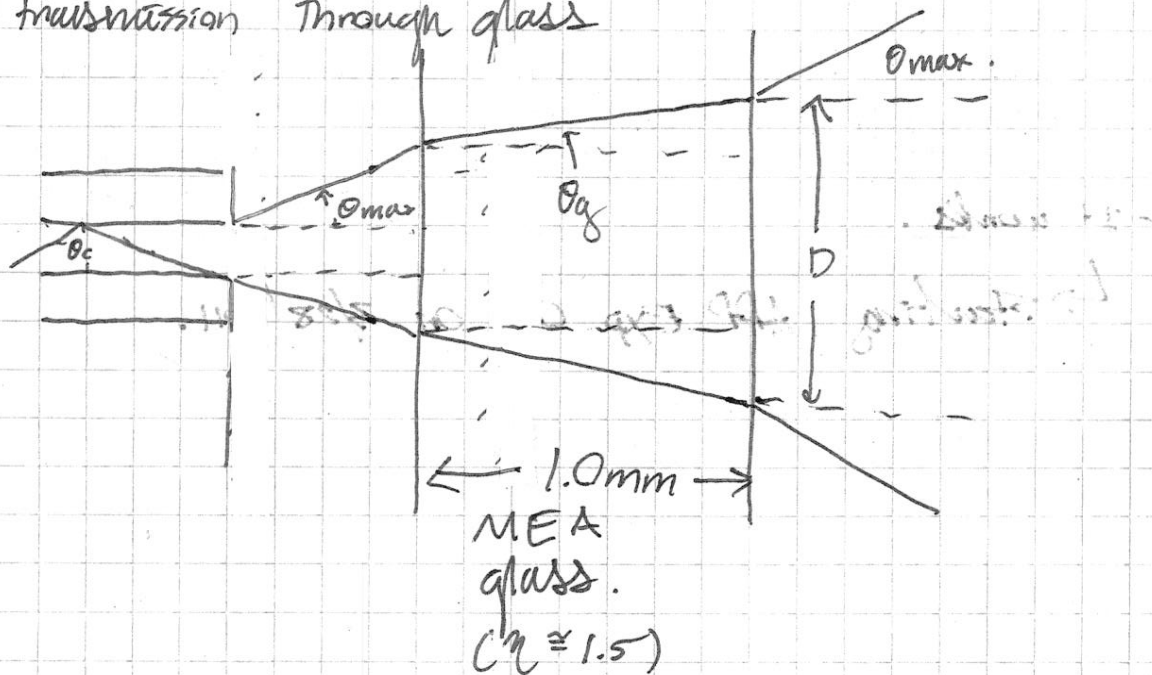 transmission Through glass
θmax.
θmax
θc
θg
D
1.0mm
MEA
glass.
(η ≅ 1.5)